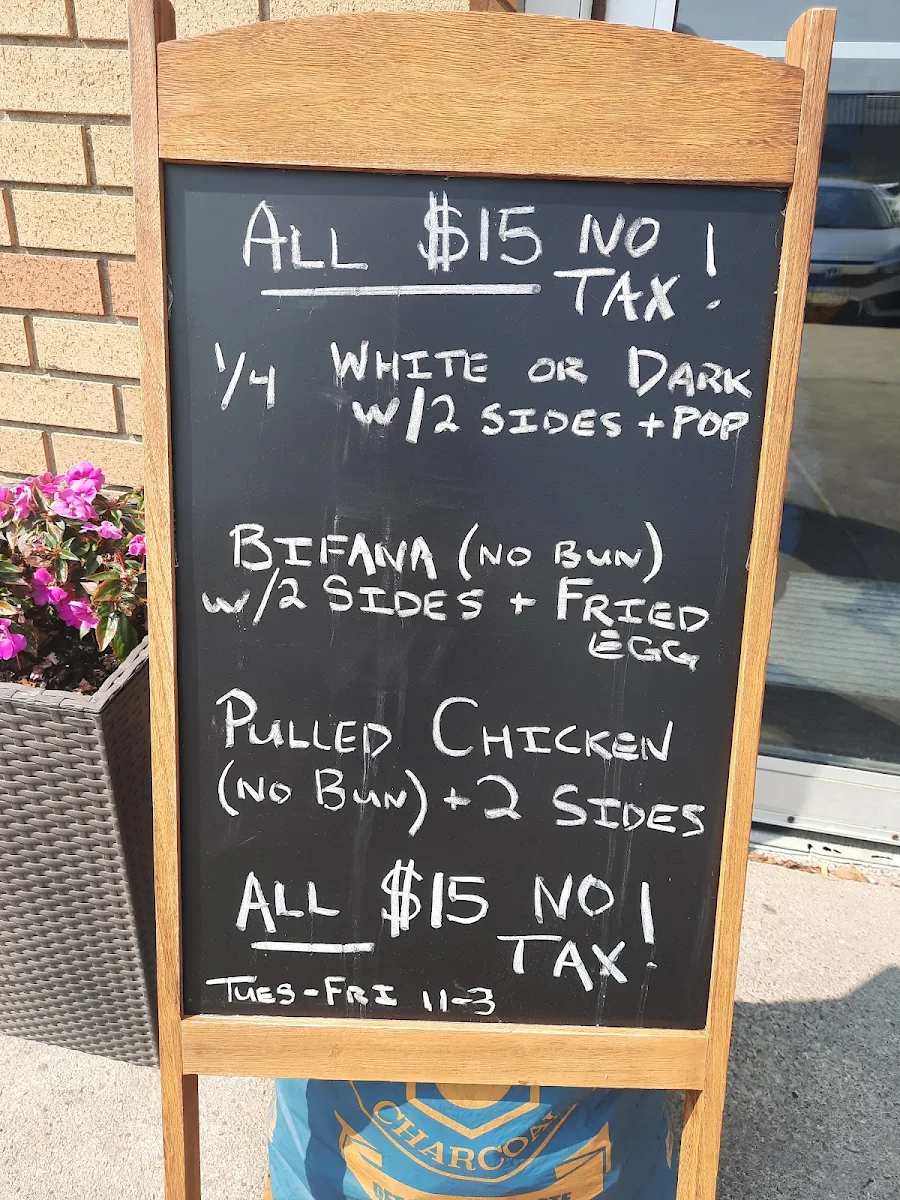 ALL $15 NO
TAX!
1/4 WHITE OR DARK
W/2 SIDES + POP
BIFANA (NO BUN)
W/2 SIDES + FRIED
EGG
PULLED CHICKEN
(NO BUN) + 2 SIDES
ALL $15 NO
TAX!
TUES-FRI 11-3
CHARCOAL